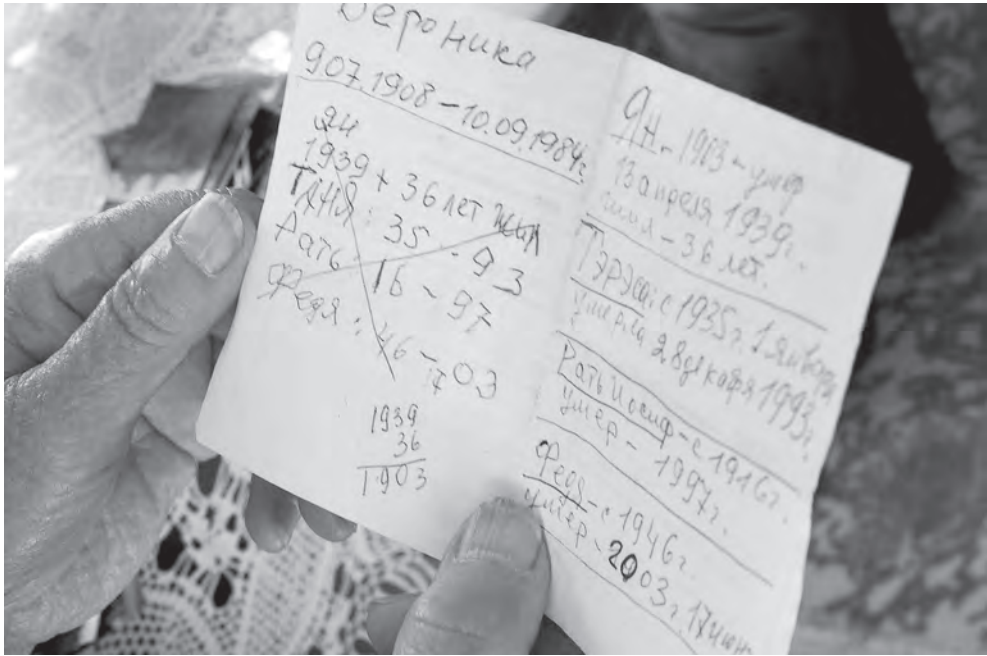 Вероника
907.1908-10.09.1984г.
ЯН
1939 + 36 лет жил
ТАНЯ: 35 - 93
Рать - 16 - 97
Федя: 46 - 03
17
1939
36
1903
ЯН. - 1903 - умер
13 апреля 1939г.
жил - 36 лет.
Тэрэса: с 1935г. 1 января
умерла 28 декабря 1993г.
Рать Иосиф - с 1916г.
умер - 1997г.
Федя - с 1946г
умер - 2003г. 17 июн